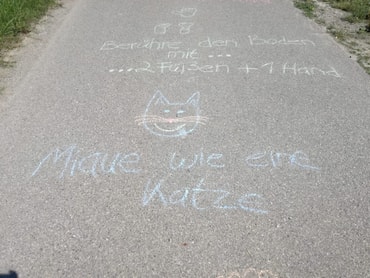 Berühre den Boden
mit ...
... 2 Füßen + 1 Hand
Miaue wie eine
Katze